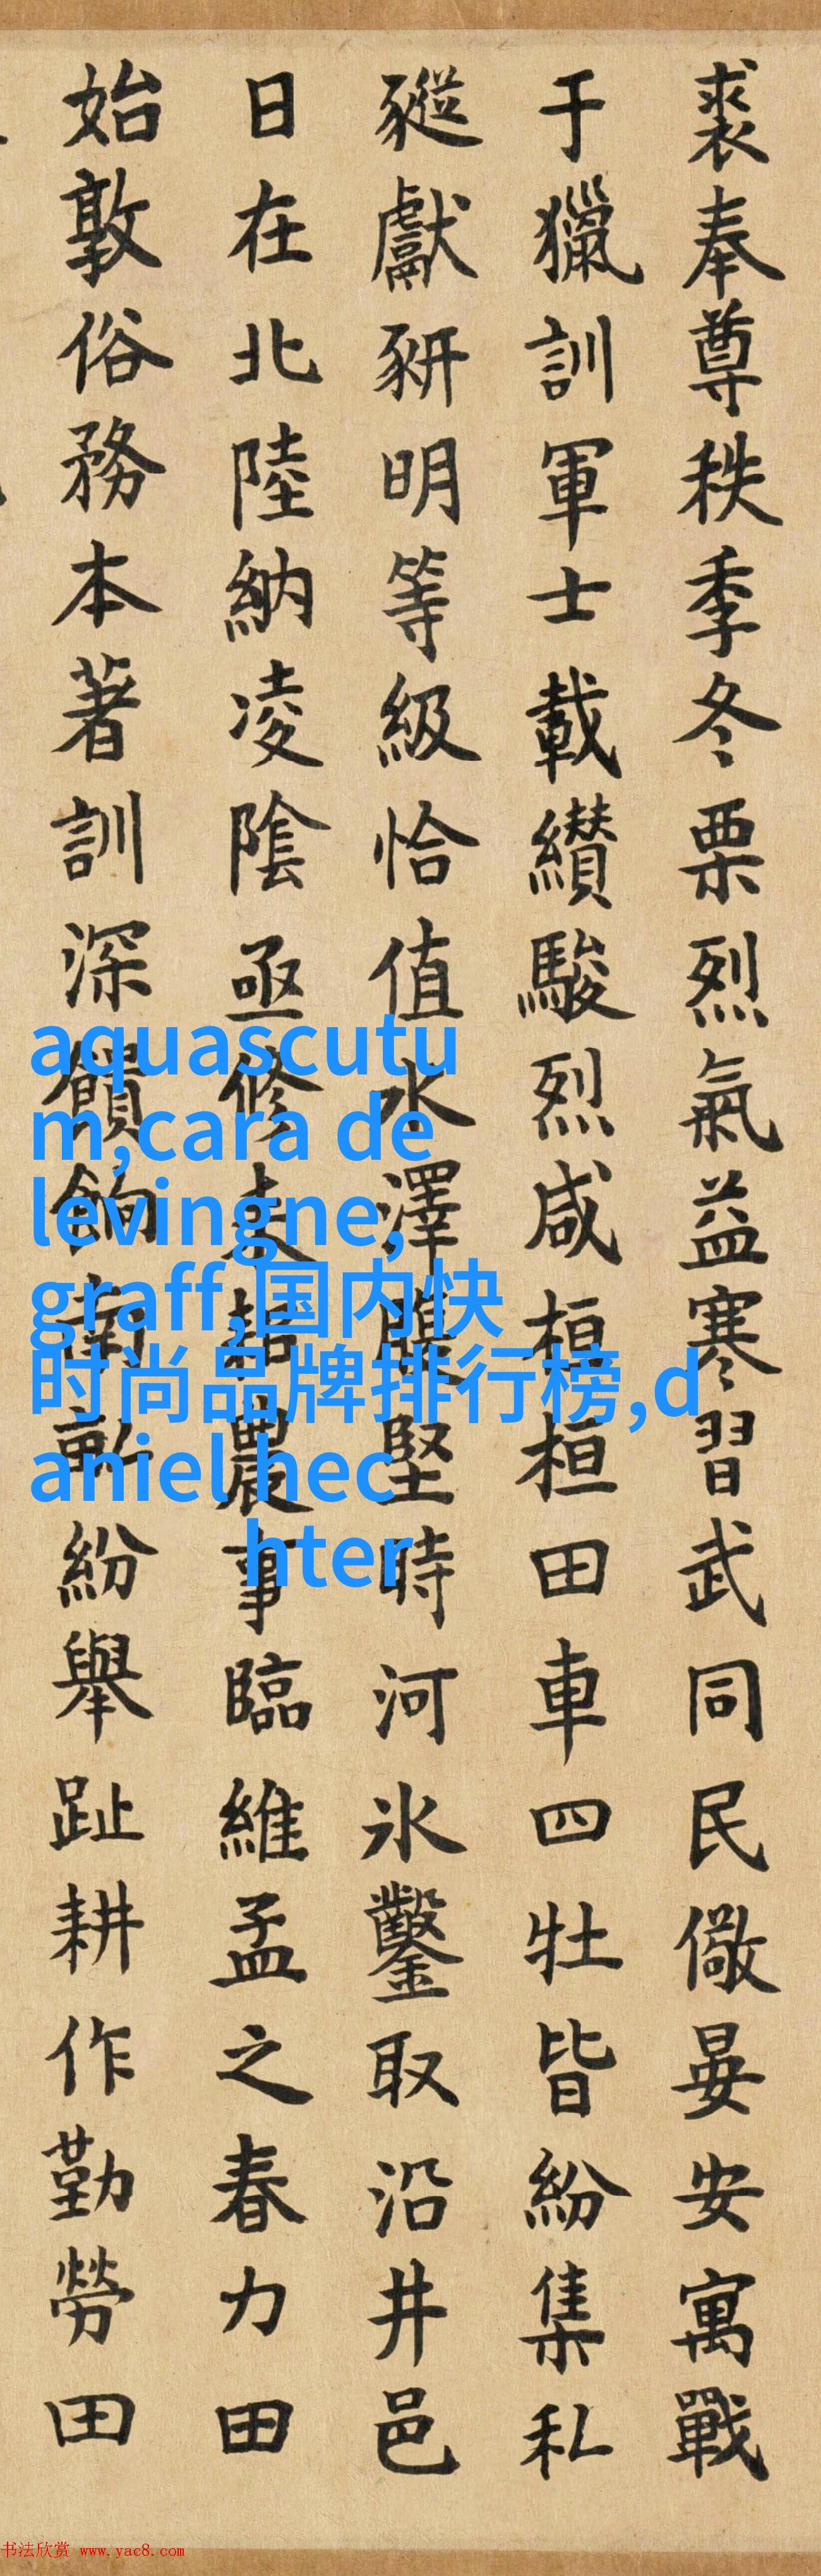 裘奉尊秩季冬栗烈氣益寒習武同民儆晏安寓戰
于獵訓軍士載纘駿烈咸桓桓田車四牡皆紛集私
豵獻豣明等級恰值水澤腹堅時河氷鑿取沿井邑
日在北陸納凌陰亟修耒耜農事臨維孟之春力田
始敦俗務本著訓深饙餉南畝紛舉趾耕作勤勞田
aquascutu
m,cara de
levingne,
graff,国内快
时尚品牌排行榜,d
aniel hec
hter
书法欣赏 www.yac8.com